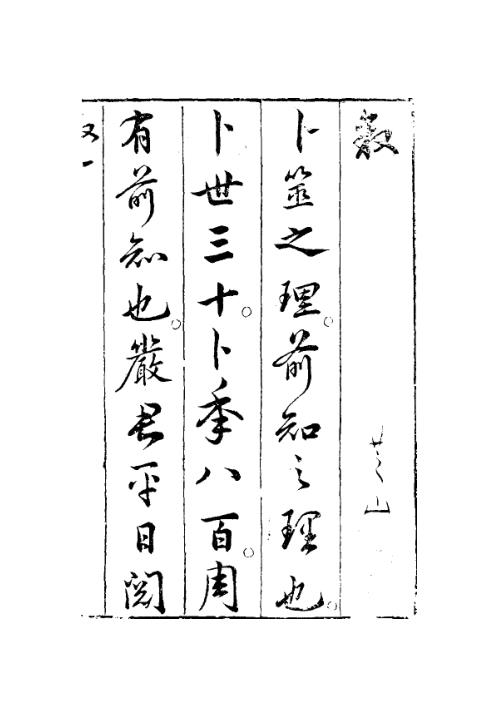 芝山
卜筮之理前知之理也
卜世三十卜季八百周
有前知也嚴君平日閱